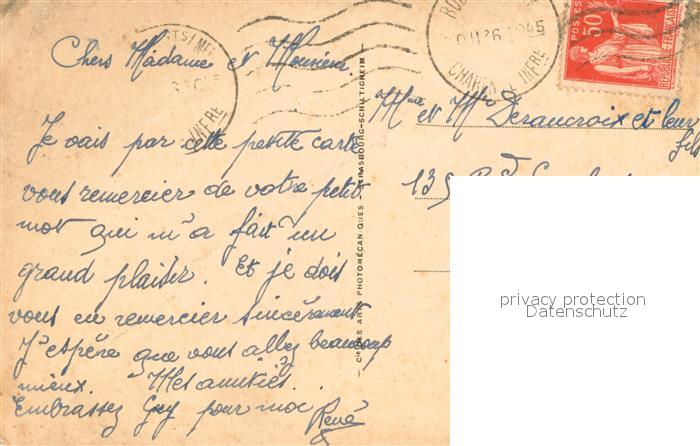 Chers Madame et Monsieur.
Je vais par cette petite carte
vous remercier de votre petit
mot qui m'a fait un
grand plaisir. Et je dois
vous en remercier sincèrement
J'espère que vous allez beaucoup
mieux. Mes amitiés.
Embrassez Guy pour moi
René
Cie DES ARTS PHOTOMÉCANIQUES - STRASBOURG-SCHILTIGHEIM
CHAREN INFRE
INFRE
POSTES
50
REPUBLIQUE FRANÇAISE
Mme et Mr Deraucroix et leur
fils
135
privacy protection
Datenschutz